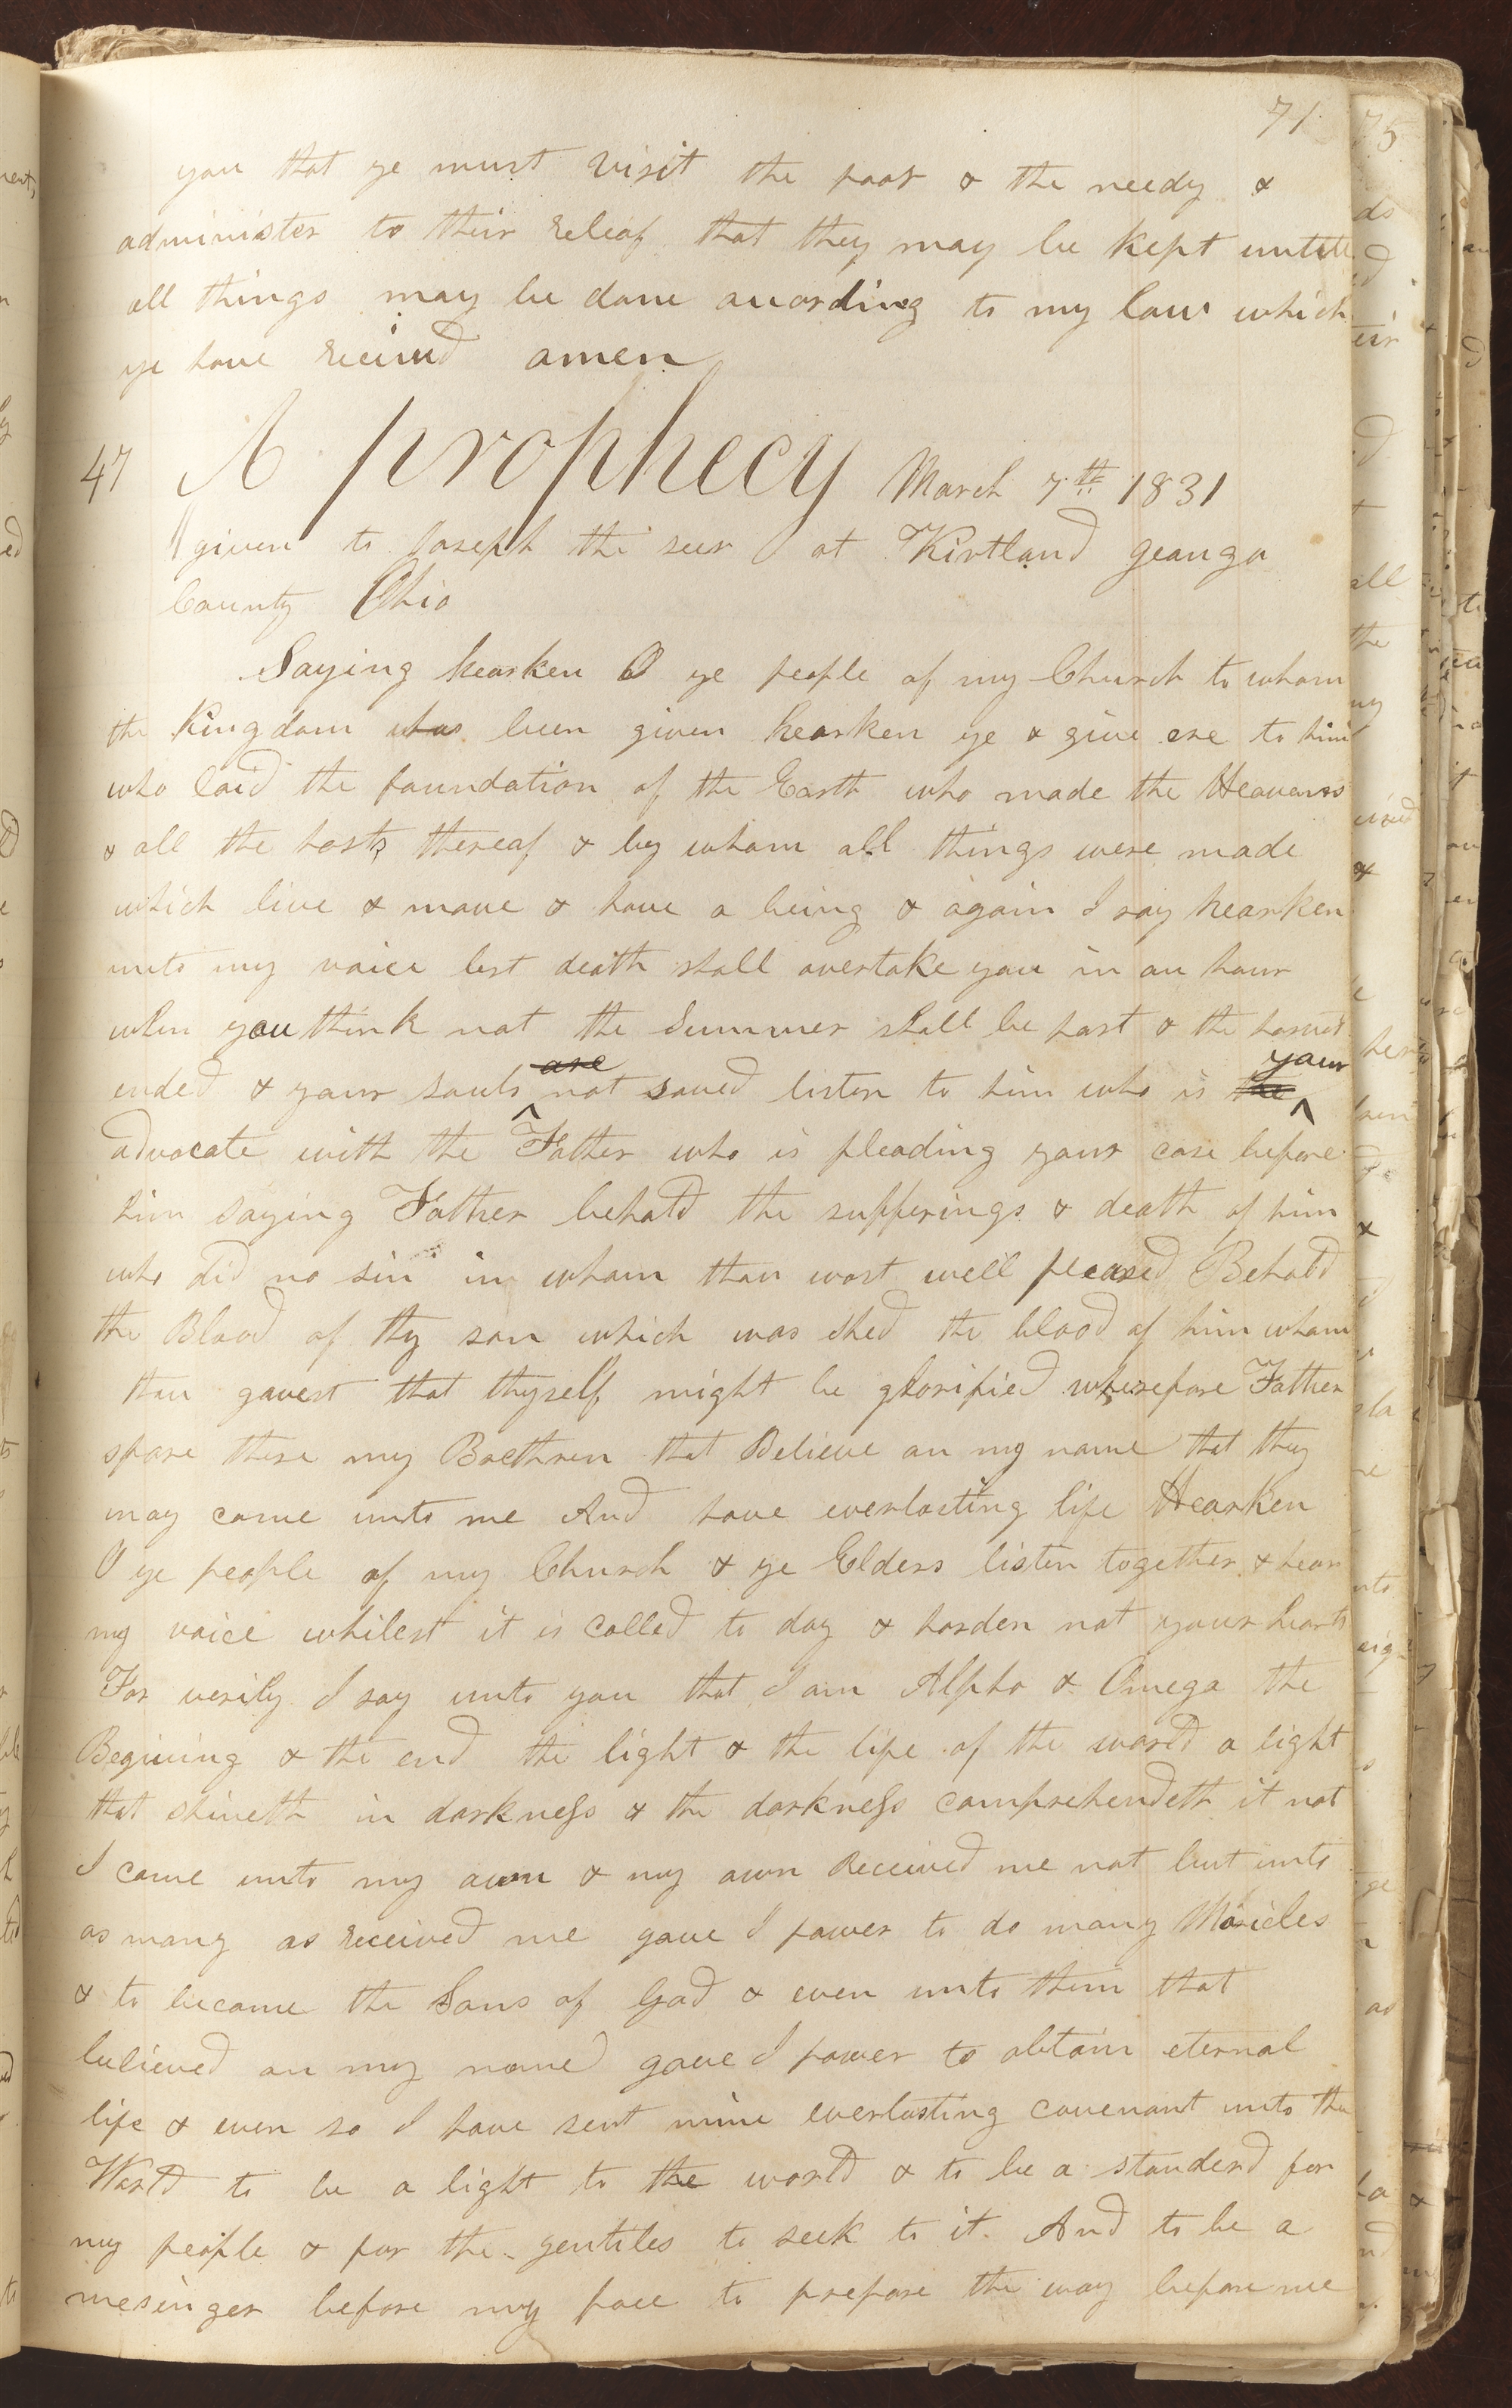 71
you that ye must visit the poor & the needy &
administer to their releaf that they may be kept untill
all things may be done acording to my law which
ye have recieved amen
47 A prophecy March 7th 1831
given to Joseph the seer at Kirtland geauga
County Ohio
Saying hearken O ye people of my Church to whom
the Kingdom has been given hearken ye & give ere to him
who laid the foundation of the Earth who made the Heavans
& all the hosts thereof & by whom all things were made
which live & move & have a being & again I say hearken
unto my voice lest death shall overtake you in an hour
when you think not the Summer shall be past & the harvest
ended & your souls are not saved listen to him who is the your
advocate with the Father who is pleading your case before
him saying Father behold the sufferings & death of him
who did no sin in whom thou wast well pleased Behold
the Blood of thy son which was shed the blood of him whom
thou gavest that thyself might be glorified wherefore Father
spare these my Brethren that Believe on my name that they
may come unto me And have everlasting life Hearken
O ye people of my Church & ye Elders listen together & hear
my voice whilest it is called to day & harden not your hearts
For verily I say unto you that I am Alpha & Omega the
Begining & the end the light & the life of the world a light
that shineth in darkness & the darkness comprehendeth it not
I came unto my own & my own received me not but unto
as many as received me gave I power to do many Maricles
& to become the Sons of God & even unto them that
believed on my name gave I power to obtain eternal
life & even so I have sent mine everlasting covenant unto the
World to be a light to the world & to be a standerd for
my people & for the gentiles to seek to it. And to be a
mesinger before my face to prepare the way before me
75